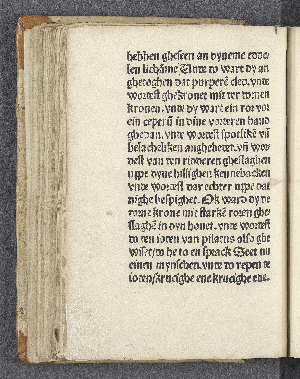 hebben gheseen an dyneme edde-
len lichāme Unde to wart dy an
ghetoghen dat purperē cled. vnde
wordest ghekronet mit der dornen
kronen. vnde dy wart ein ror vor
ein ceperū in dine vorderen hand
ghedan. vnde wordest spotlikē vñ
belacheliken anghebedet. vñ wor-
dest van den ridderen gheslaghen
uppe dyne hillighen kennebacken
vnde wordest dar echter uppe dat
nighe bespighet. Ok ward dy de
dorne krone mit starkē roren ghe
slaghē in dyn houet. vnde wordest
to den ioden van pilatus also ghe
wiset. do he to en sprack Seet nu
einen mynschen. vnde to repen de
ioden krucighe ene krucighe ene.